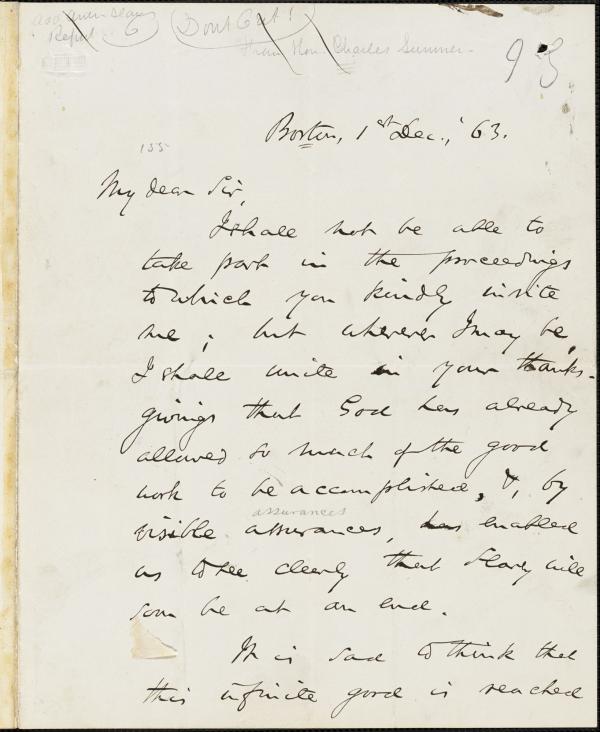 (Dont Cut!)
From Hon. Charles Sumner -
93
Boston, 1st Dec., '63.
155
My dear Sir,
I shall not be able to
take part in the proceedings
to which you kindly invite
me; but wherever I may be,
I shall unite in your thanks-
givings that God has already
allowed so much of the good
work to be accomplished, &, by
assurances
visible assurances, has enabled
us to see clearly that Slavery will
soon be at an end.
It is sad to think that
this infinite good is reached